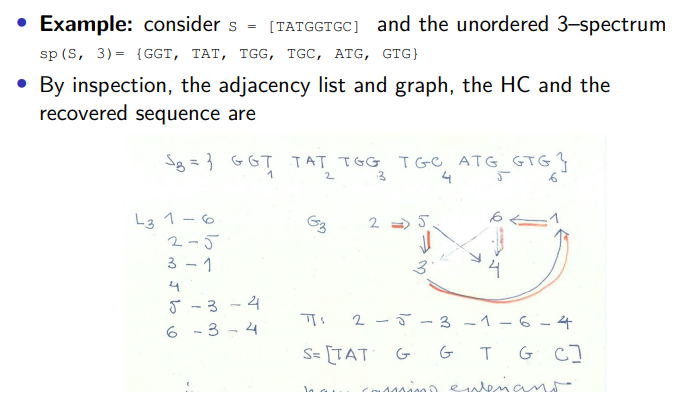 • Example: consider S = [TATGGTGC] and the unordered 3–spectrum
sp(S, 3)= {GGT, TAT, TGG, TGC, ATG, GTG}
• By inspection, the adjacency list and graph, the HC and the
recovered sequence are
S3 = { GGT TAT TGG TGC ATG GTG }
1 2 3 4 5 6
L3 1 - 6
2 - 5
3 - 1
4
5 - 3 - 4
6 - 3 - 4
G3 2 ⇒ 5 6 ⇐ 1
3 4
π: 2 - 5 - 3 - 1 - 6 - 4
S = [TAT G G T G C]